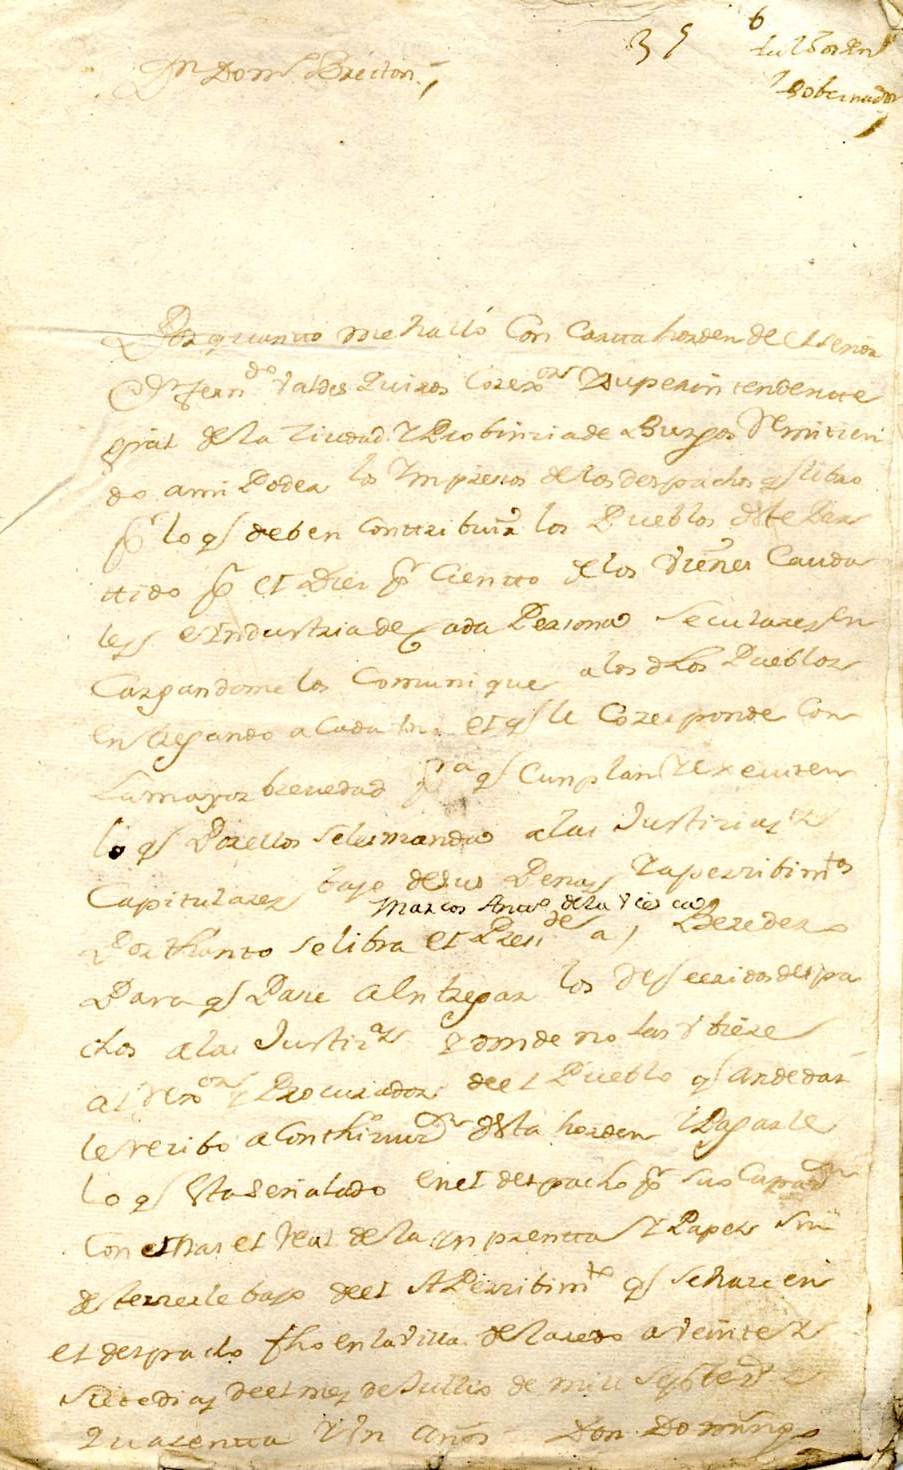 35 6
Gobernador
Por quanto me hallo Con Carta horden de el senor
Dn Fern.do Valdes Quiros Correx.or Y superintendente
gral de la Ziudad Y Probinzia de Burgos Remitien
do a mi Poder los Ympresos de los despachos q libro
Pr lo q deben Conttribuir los Pueblos deste Par
ttido Pr el Diez Pr Cientto de los Vienes Cauda
les e Yndustria de Cada Persona Seculares En
Cargandome los Comunique a los dhos Pueblos
Entregando a Cada Uno el q le Corresponde Con
La mayor brevedad Pra q Cunplan Y executen
lo q Por ellos se les manda a las Justizias Y
Capitulares bajo de sus Penas Y apercibim.tos
Marcos Antt.o de la
Por thanto se libra el Press.te a, Beredero
Para q Pase a Entregar los Referidos despa
chos a las Justiz.as Y donde no las Ubiere
al Rex.or Y Procurador de el Pueblo q an de dar
le rezibo a Conthinuaz.on desta horden Y Pagarle
lo q Esta Señalado en el despacho Pr
Con mas el Real de la Ynprentta Y Papel Sin
detenerle bajo de el APerzibim.to q se haze en
el despacho fho en la Villa de Laredo a Veinte Y
Siete dias de el mes de Jullio de mill Settez.s Y
Quarentta Y Un años Don Domingo